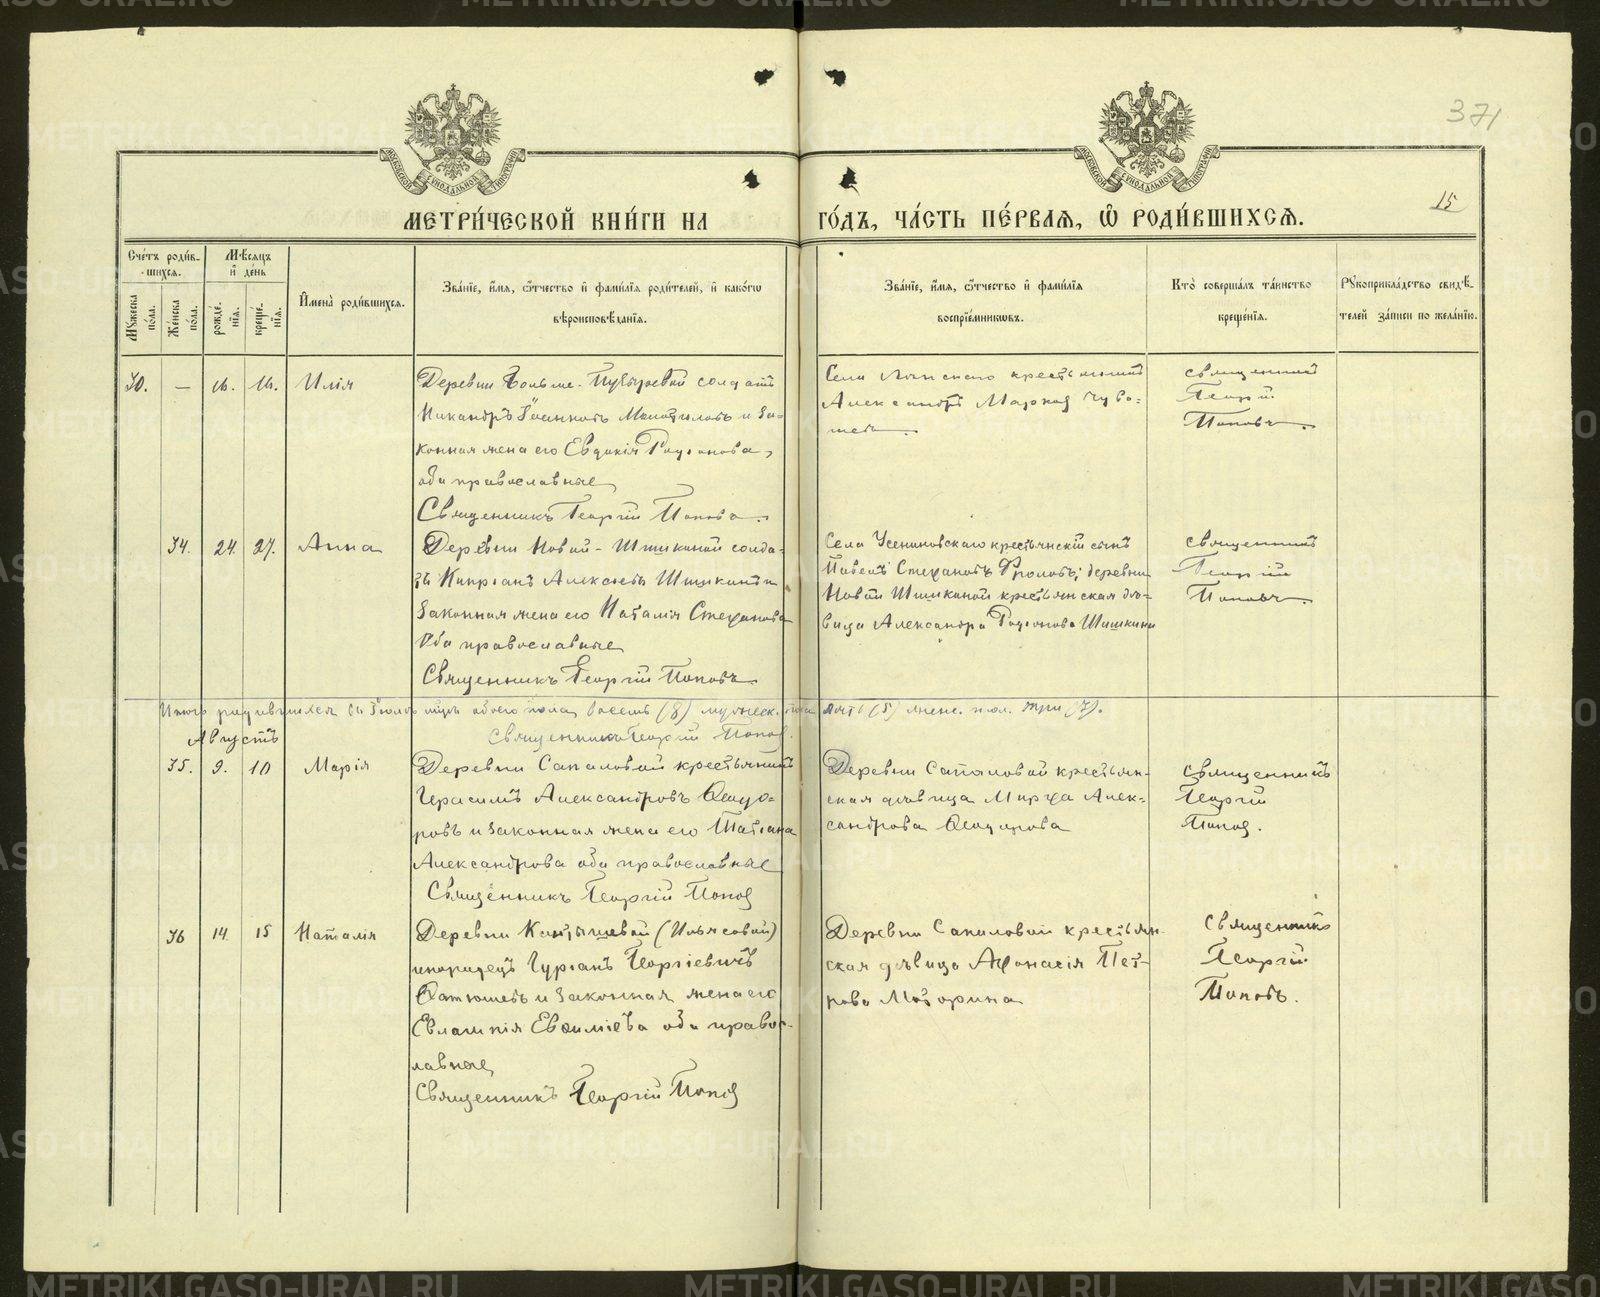 371
15
МОСКОВСКОЙ СѴНОДАЛЬНОЙ ТИПОГРАФІИ
МОСКОВСКОЙ СѴНОДАЛЬНОЙ ТИПОГРАФІИ
МЕТРИ́ЧЕСКОЙ КНИ́ГИ НА ГО́ДЪ, ЧА́СТЬ ПЕ́РВАЯ, Ѡ РОДИ́ВШИХСЯ.
Сче́тъ роди́вшихся.
Мѣ́сяцъ и де́нь
Му́жеска по́ла.
Же́нска по́ла.
рожде́нія.
креще́нія.
Имена̀ роди́вшихся.
Зва́ніе, имя, о́тчество и фами́лія роди́телей, и како́гѡ
вѣроисповѣ́данія.
Зва́ніе, имя, о́тчество и фами́лія
воспріе́мниковъ.
Кто̀ соверша́лъ та́инство
креще́нія.
Рукоприкла́дство свидѣ́-
телей за́писи по жела́нію.
30. — 16. 16. Илія
Деревни Больше-Пубыревой солдатъ
Никандръ Іоанновъ и за-
конная жена его Евдокія Родионова,
оба православные
Священникъ Георгій Поповъ.
Села крестьянинъ
Александръ Марков Чува-
шевъ.
священникъ
Георгій
Поповъ.
34. 24. 27. Анна
Деревни Новой-Шишкиной солда-
тъ Кипріанъ Алексѣевъ Шишкинъ и
законная жена его Наталія Стефанова
Оба православные
Священникъ Георгій Поповъ.
Села Усениновскаго крестьянскій сынъ
Павелъ Стефановъ Фроловъ; деревни
Новой Шишкиной крестьянская дѣ-
вица Александра Родионова Шишкина
священникъ
Георгій
Поповъ.
Итого родившихся въ Іюлѣ мцѣ обоего пола восемь (8) мужеск. пола пять (5) женс. пол. три (3).
Священникъ Георгій Попов.
Августъ
35. 9. 10 Марія
Деревни Сапаловой крестьянинъ
Герасимъ Александровъ Ѳедо-
ровъ и законная жена его Татіана
Александрова оба православные
Священникъ Георгій Попов
Деревни Сапаловой крестьян-
ская дѣвица Марѳа Алек-
сандрова Ѳедорова
священникъ
Георгій
Попов.
36 14. 15 Наталія
Деревни Кантышевой (Ильясовой)
инородецъ Гуріанъ Георгіевичъ
и законная жена его
Евлампія Евѳиміева оба право-
славные
Священникъ Георгій Попов
Деревни Сапаловой крестьян-
ская дѣвица Аѳонасія Пет-
рова Моторина
священникъ
Георгій
Поповъ.
METRIKI.GASO-URAL.RU